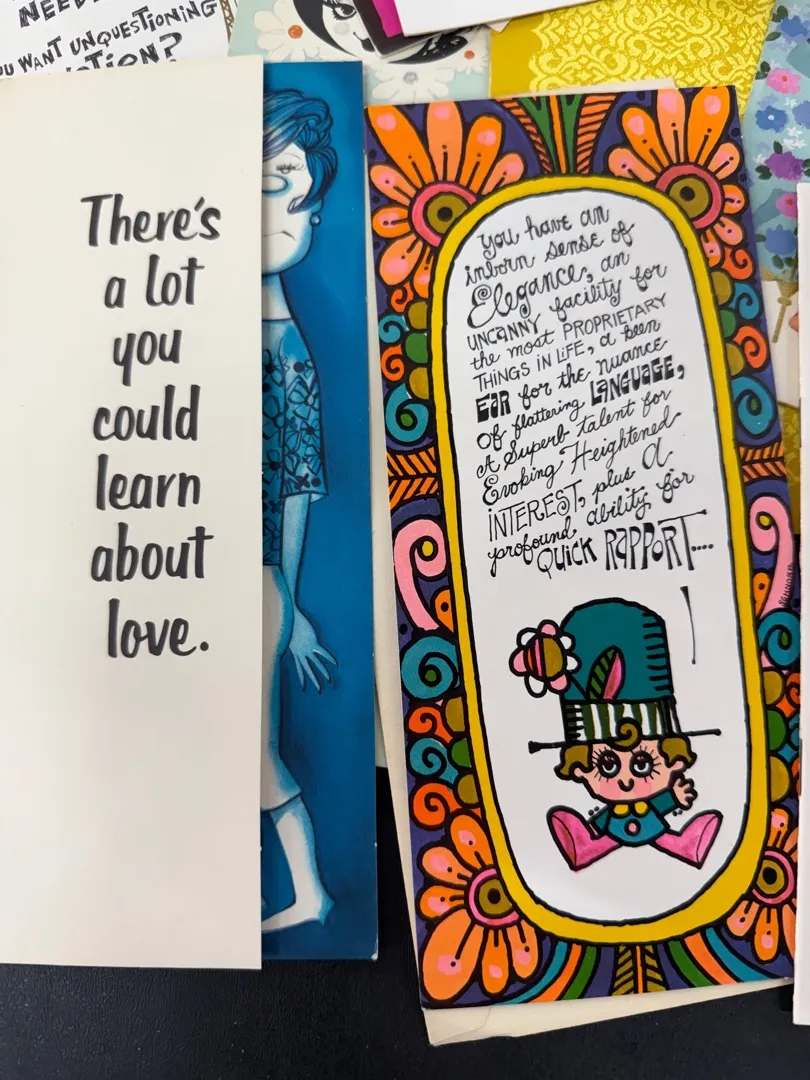 NEED
OU WANT UNQUESTIONING
OTION?
There's
a lot
you
could
learn
about
love.
you have an
inborn sense of
Elegance, an
UNCANNY facility for
the most PROPRIETARY
THINGS IN LIFE, a keen
EAR for the nuance
Of flattering LANGUAGE,
A Superb talent for
Evoking Heightened
INTEREST, plus a
profound ability for
QUICK RAPPORT....